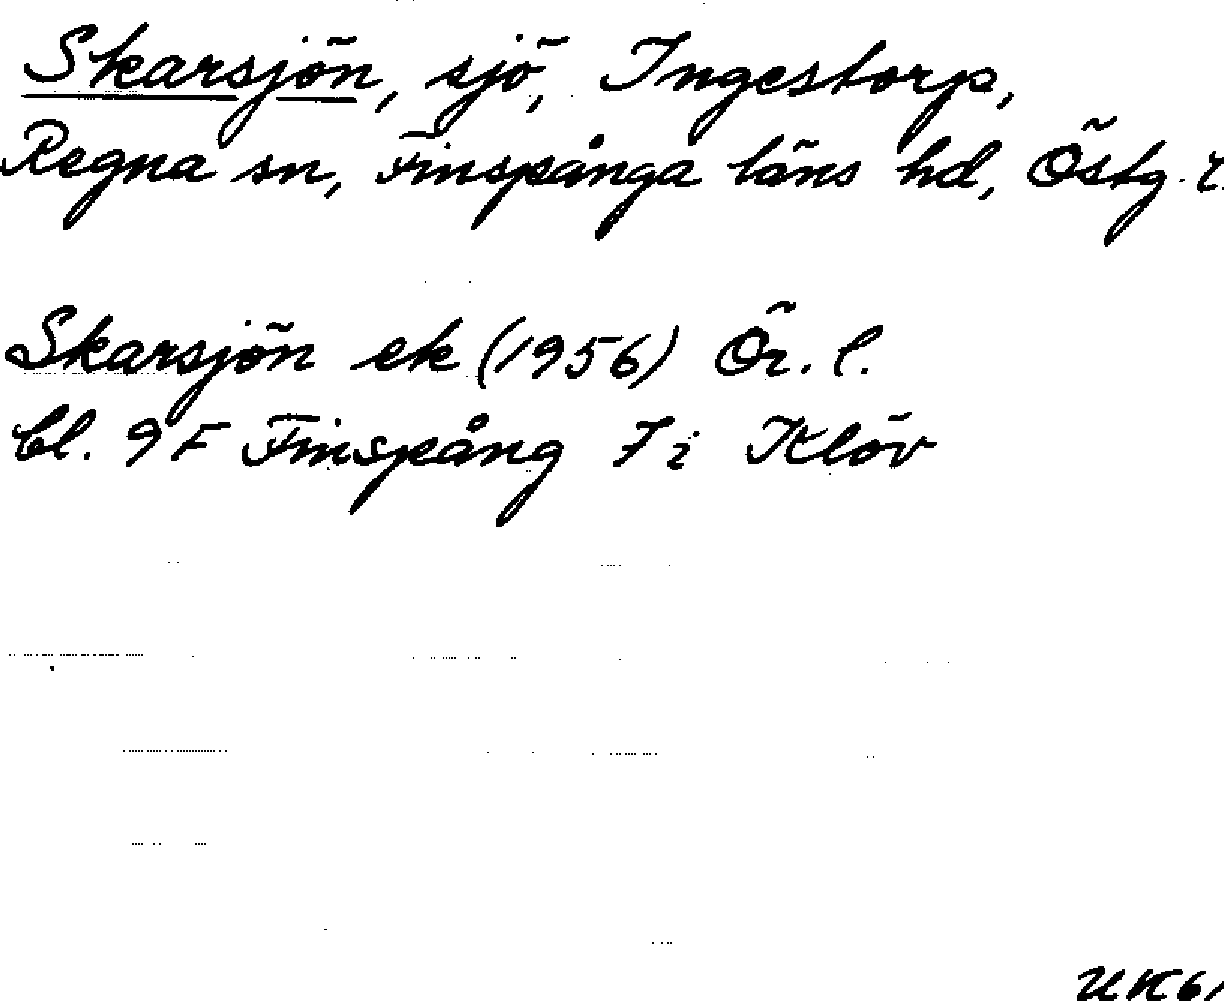 Skarsjön, sjö, Ingestorp,
Regna sn, Finspånga läns hd, Östg. l.
Skarsjön ek (1956) Ör. l.
bl. 9F Finspång 7i Klöv
UK6